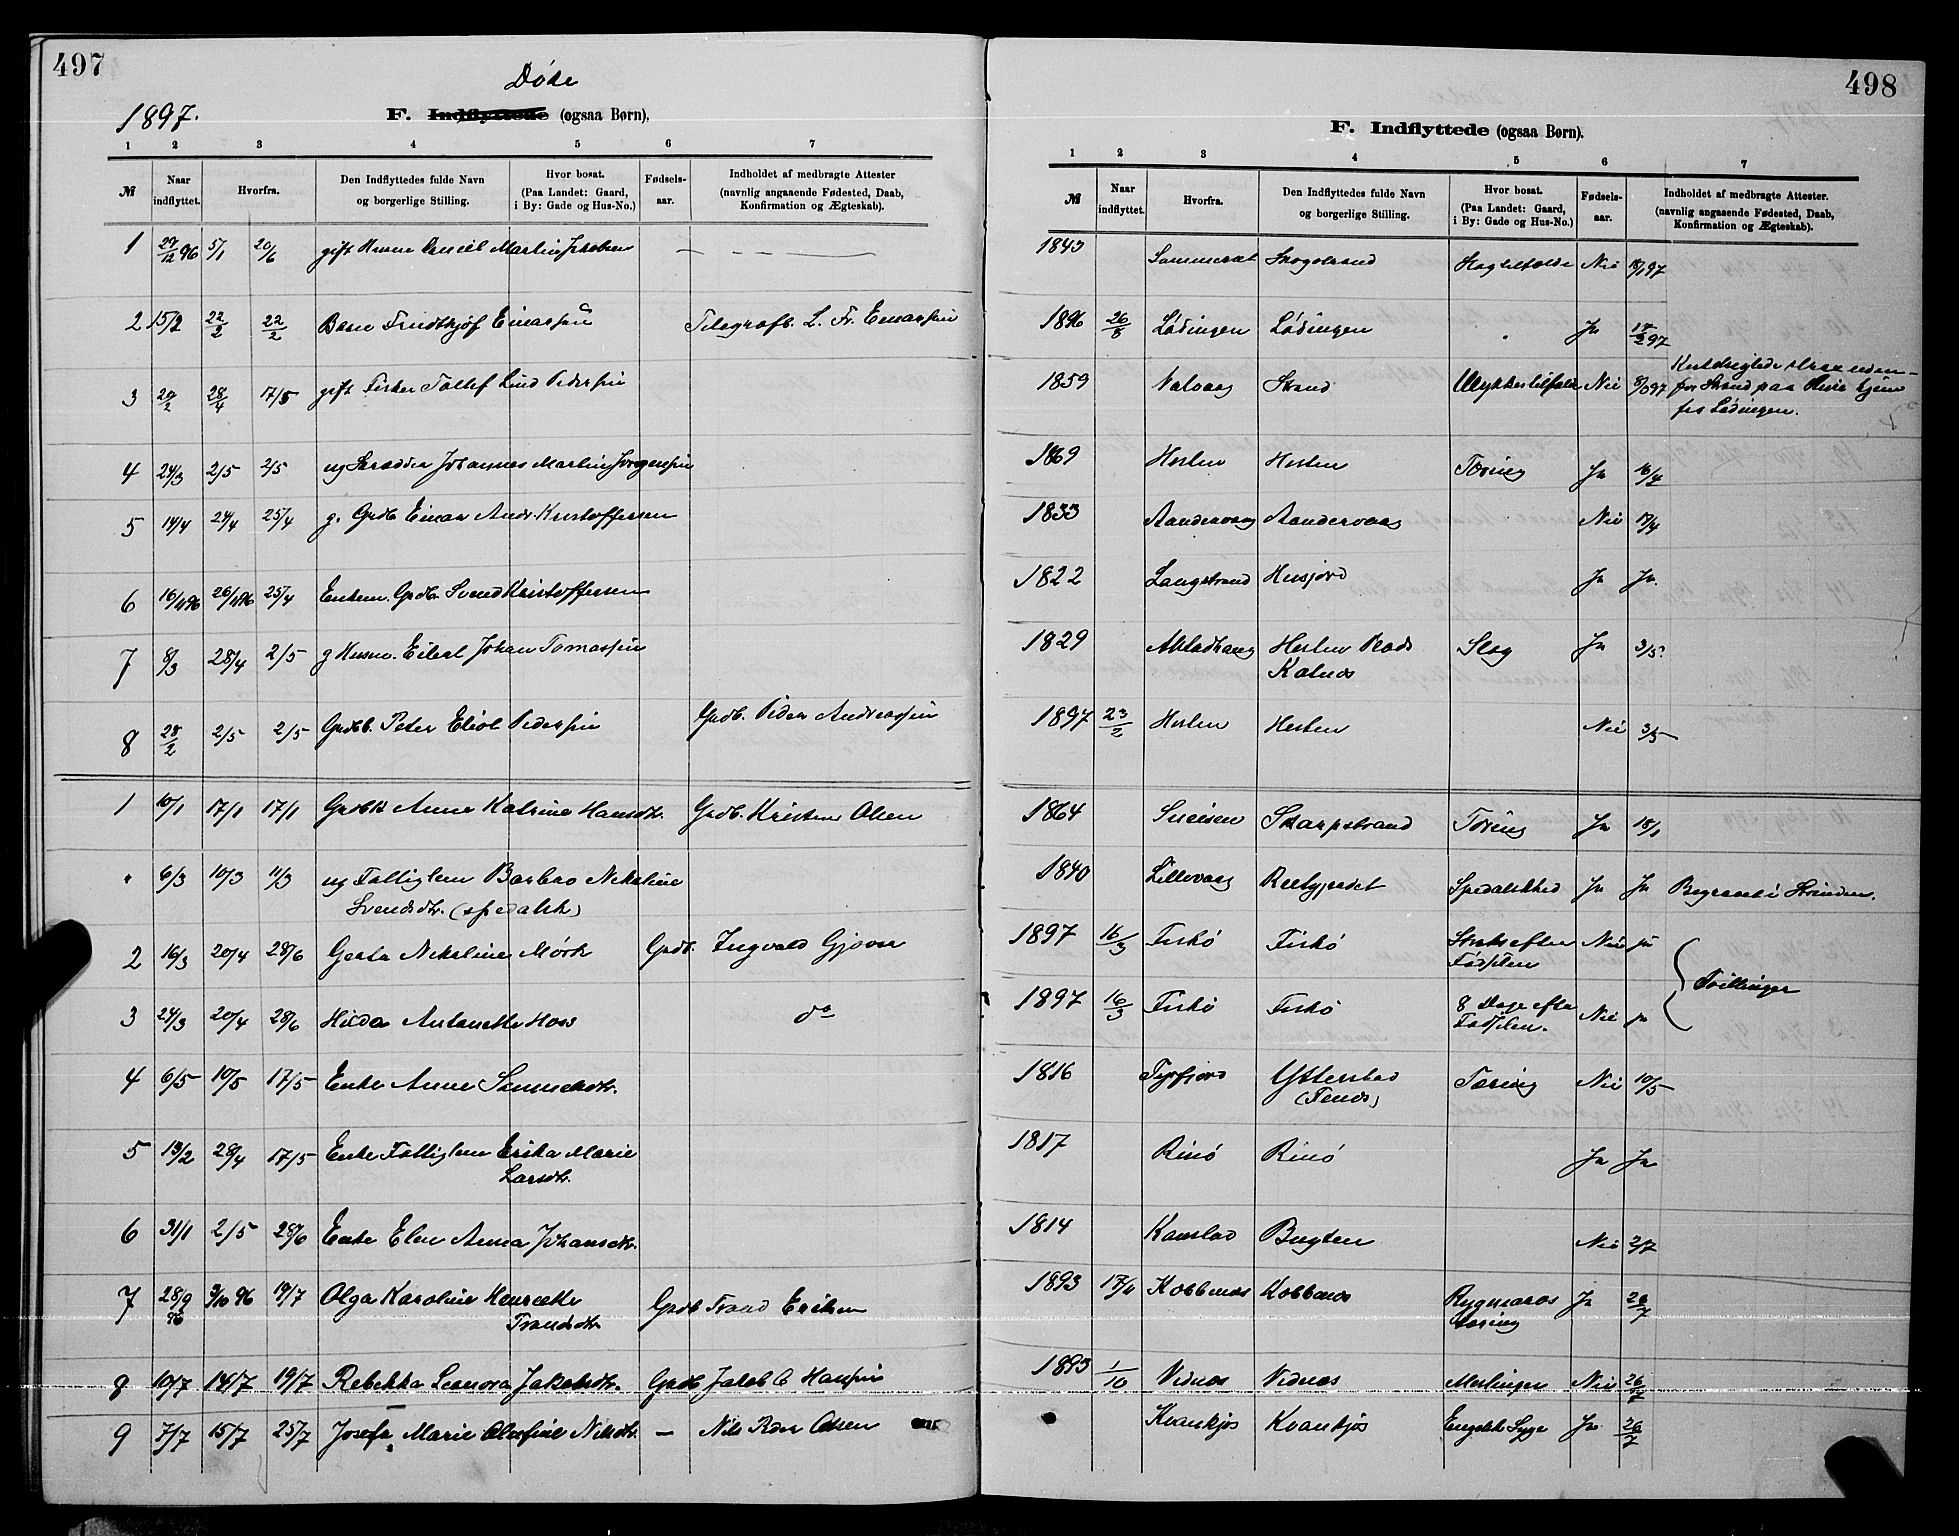 497
Døde
1897.
F. Indflyttede (ogsaa Børn).
1 2 3 4 5 6 7
№ Naar indflyttet. Hvorfra. Den Indflyttedes fulde Navn og borgerlige Stilling. Hvor bosat. (Paa Landet: Gaard, i By: Gade og Hus-No.) Fødsels-aar. Indholdet af medbragte Attester (navnlig angaaende Fødested, Daab, Konfirmation og Ægteskab).
1 29/12 96 5/1 20/6 gift Martin Jakobsen
2 15/2 22/2 22/2 Barn Fridtkjøf Einarsen Telegrafb. L. Fr. Einarsen
3 20/2 28/4 17/5 gift Fisker Tollef Lind Pedersen
4 24/3 2/5 2/5 ug Skrædder Johannes Martin Jørgensen
5 14/4 24/4 25/4 g. Grdb Einar Andr. Kristoffersen
6 16/4 96 26/4 96 25/4 Enkem. Grdb. Svend Kristoffersen
7 8/3 28/4 2/5 g Husm. Eilert Johan Tomassen
8 28/2 2/5 2/5 Grdbb. Peter Eliot Pedersen Grdb. Peder Andreassen
1 10/1 17/1 17/1 Grdbk Anne Katrine Hansdtr. Grdb. Kristen Olsen
6/3 10/3 11/3 ug Fattiglem Barbro Nikoline
Svendsdtr. (spedalsk)
2 16/3 20/4 28/6 Gerta Nikoline Mørk Grdb. Ingvald Gjovor
3 24/3 20/4 28/6 Hilda Antonette Hoss do
4 6/5 10/5 17/5 Enke Anne
5 13/2 28/4 17/5 Enke Fattiglem Erika Marie
Larsdtr.
6 31/1 2/5 28/6 Enke Elen Anna Johansdtr.
7 28/9 96 3/10 96 19/7 Olga Karoline Henriette
Trondsdtr. Grdb Trond Eriksen
8 10/7 14/7 19/7 Rebekka Leonora Jakobsdtr. Grdb Jakob C Hansen
9 7/7 15/7 25/7 Josefa Marie Olufine Nilsdtr. — Nils Peder Olsen
498
F. Indflyttede (ogsaa Børn).
1 2 3 4 5 6 7
№ Naar indflyttet. Hvorfra. Den Indflyttedes fulde Navn og borgerlige Stilling. Hvor bosat. (Paa Landet: Gaard, i By: Gade og Hus-No.) Fødsels-aar. Indholdet af medbragte Attester. (navnlig angaaende Fødested, Daab, Konfirmation og Ægteskab).
1843 Sommerset Skogstrand Nei
1896 26/8 Lødingen Lødingen Ja 17/2 97
1859 Strand Ulykkestilfælde Nei
for Strand paa Reise hjem
fra Lødingen.
1869 Hesten Hesten Tæring Ja 16/4
1833 Aandervaag Aandervaag Nei 19/4
1822 Langstrand Husjord Ja Ja
1829 Hesten
Kalnes Slag Ja 3/5.
1897 23/2 Hesten Hesten Nei 3/5
1864 Sneisen Skarpstrand Tæring Ja 18/1
1840 Lillevaag Reitgjærdet Spedalskhed Ja Ja Begravet i Strinden.
1897 16/3 Fiskø Fiskø Straks efter
Fødselen Nei ja
Tvillinger
1897 16/3 Fiskø Fiskø 8 Dage efter
Fødselen. Nei ja
1816 Tysfjord Ytterstad
Tæring Nei 10/5
1817 Rinø Rinø Ja Ja
1814 Kanstad Bugten Nei 2/7
1893 17/11 Kobbenes Kobbenes Rygmarvs
tæring Ja 26/7
1893 1/10 Vidnes Vidnes Meslinger Nei 26/7
Kvankjos Kvankjos Engelsk Syge Ja 26/7